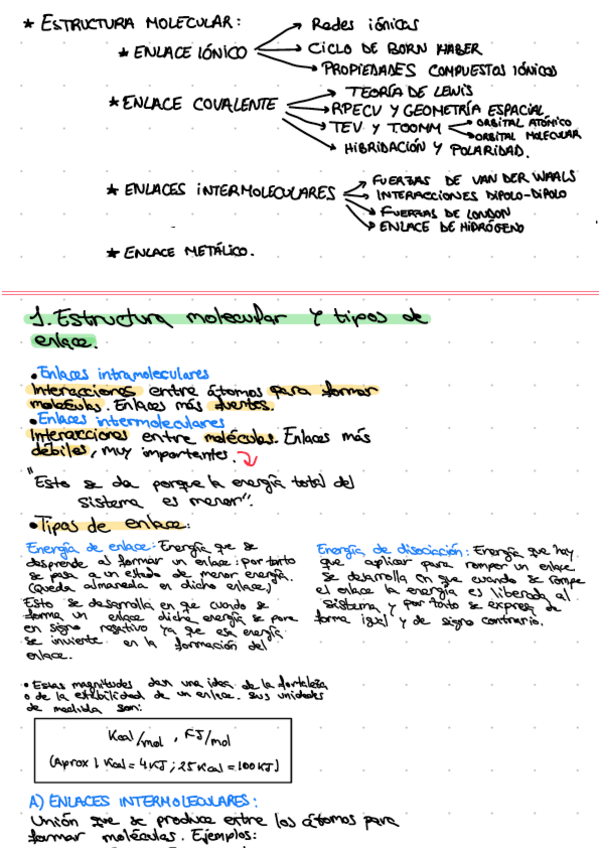 * ESTRUCTURA MOLECULAR:
Redes iónicas
* ENLACE IÓNICO
CICLO DE BORN HABER
PROPIEDADES COMPUESTOS IÓNICOS
TEORÍA DE LEWIS
* ENLACE COVALENTE
RPECV Y GEOMETRÍA ESPACIAL
TEV Y TOOMM
ORBITAL ATÓMICO
ORBITAL MOLECULAR
HIBRIDACIÓN Y POLARIDAD.
FUERZAS DE VAN DER WAALS
* ENLACES INTERMOLECULARES
INTERACCIONES DIPOLO-DIPOLO
FUERZAS DE LONDON
ENLACE DE HIDRÓGENO
* ENLACE METÁLICO.
1. Estructura molecular y tipos de
enlace.
• Enlaces intramoleculares
Interacciones entre átomos para formar
moléculas. Enlaces más fuertes.
• Enlaces intermoleculares
Interacciones entre moléculas. Enlaces más
débiles, muy importantes.
"Esto se da porque la energía total del
sistema es menor".
• Tipos de enlace:
Energía de enlace: Energía que se
desprende al formar un enlace: por tanto
se pasa a un estado de menor energía.
(Queda almacenada en dicho enlace)
Esto se desarrolla en que cuando se
forma un enlace dicha energía se pone
en signo negativo ya que esa energía
se invierte en la formación del
enlace.
Energía de disociación: Energía que hay
que aplicar para romper un enlace
Se desarrolla en que cuando se rompe
el enlace la energía es liberada al
sistema y por tanto se expresa de
forma igual y de signo contrario.
• Estas magnitudes dan una idea de la fortaleza
o de la estabilidad de un enlace. Sus unidades
de medida son:
Kcal/mol, KJ/mol
(Aprox 1 Kcal = 4KJ; 25 Kcal = 100 KJ)
A) ENLACES INTERMOLECULARES:
Unión que se produce entre los átomos para
formar moléculas. Ejemplos: